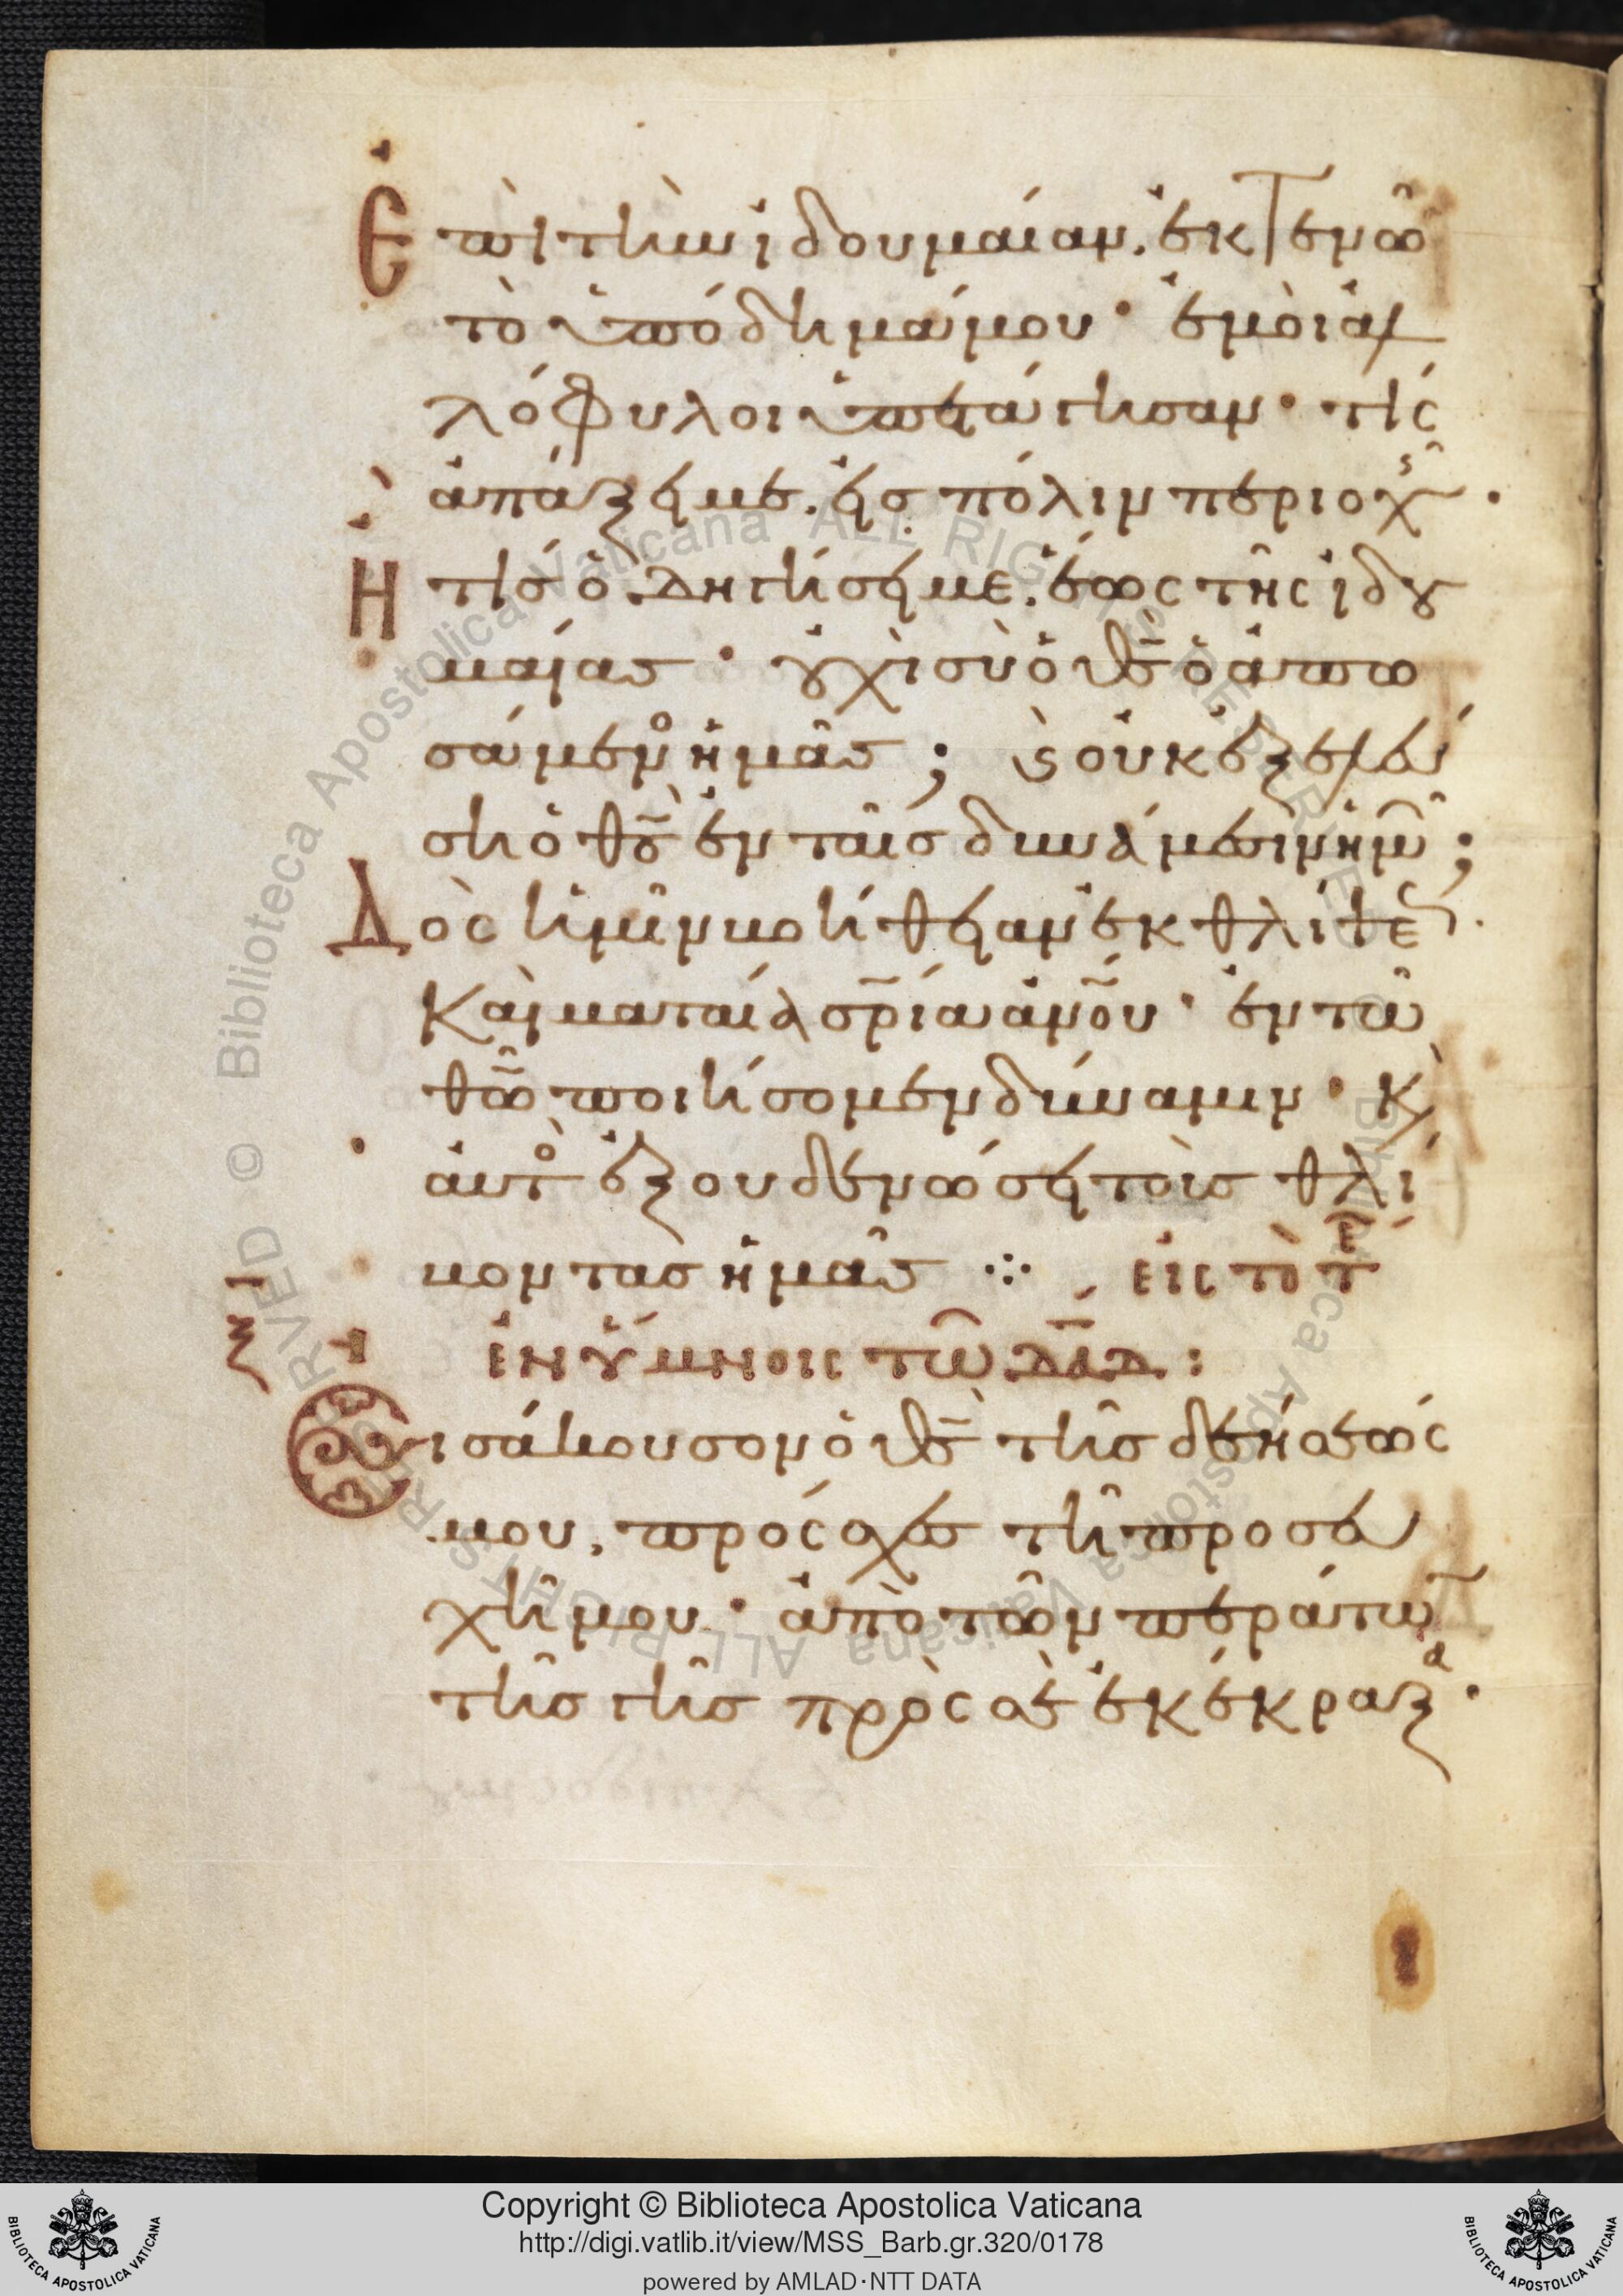 Ἐπὶ τὴν ἰδουμαίαν. ἐκτενῶ
τὸ ὑπόδημά μου· ἐμοὶ ἀλ
λόφυλοι ὑπετάγησαν· τίς
ἀπάξει με. εἰς πόλιν περιοχῆς·
Ἢ τίς ὁδηγήσει με. ἕως τῆς ἰδου
μαίας· οὐχὶ σὺ ὁ θς̄ ὁ ἀπω
σάμενος ἡμᾶς; καὶ οὐκ ἐξελεύ
σῃ ὁ θς̄ ἐν ταῖς δυνάμεσιν ἡμῶν;
Δὸς ἡμῖν βοήθειαν ἐκ θλίψεως.
Καὶ ματαία σρ̄ία ἀνο̄υ· ἐν τῶ
θω̄ ποιήσομεν δύναμιν· κὶ
αὐτὸς ἐξουδενώσει τοὺς θλί
βοντας ἡμᾶς ⁘ εἰς τὸ τέλος
ξ
ἐν ὕμνοις τῶ δᾱδ:
Εἰσάκουσον ὁ θς̄ τῆς δεήσεώς
μου, πρόσχες τῆ προσευ
χῆ μου· ἀπὸ τῶν περάτων
τῆς γῆς πρὸς σὲ ἐκέκραξα·
Copyright © Biblioteca Apostolica Vaticana
http://digi.vatlib.it/view/MSS_Barb.gr.320/0178
powered by AMLAD·NTT DATA
BIBLIOTECA APOSTOLICA VATICANA
BIBLIOTECA APOSTOLICA VATICANA